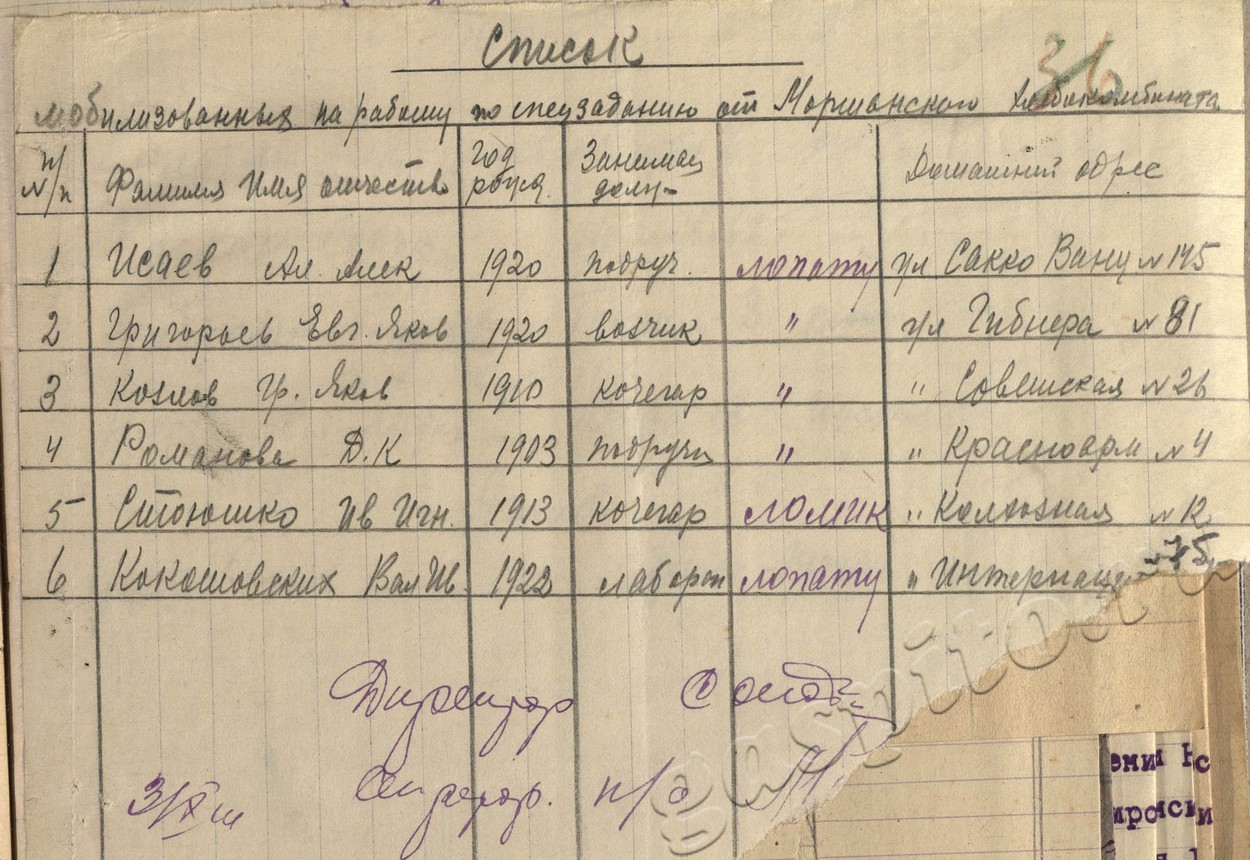 Список
36
мобилизованных на работу по спецзаданию от Моршанского хлебокомбината
№ п/п Фамилия Имя отчество Год рожд. Занимаем должн Домашний адрес
1 Исаев Ал. Алек 1920 подруч. лопату ул Сакко Ванц №
2 Григорьев Евг. Яков 1920 возчик " ул Гибнера № 81
3 Козлов Гр. Яков 1910 кочегар " " Советская № 26
4 Романова Д.К 1903 подручн " " Красноарм № 4
5 Стоюшко Ив Игн. 1913 кочегар ломик " Колхозная № 12
6 Кокошовских Вал Ив. 1922 лаборан лопату " Интернац № 75
Директор
3/XII
п/о
gaspito